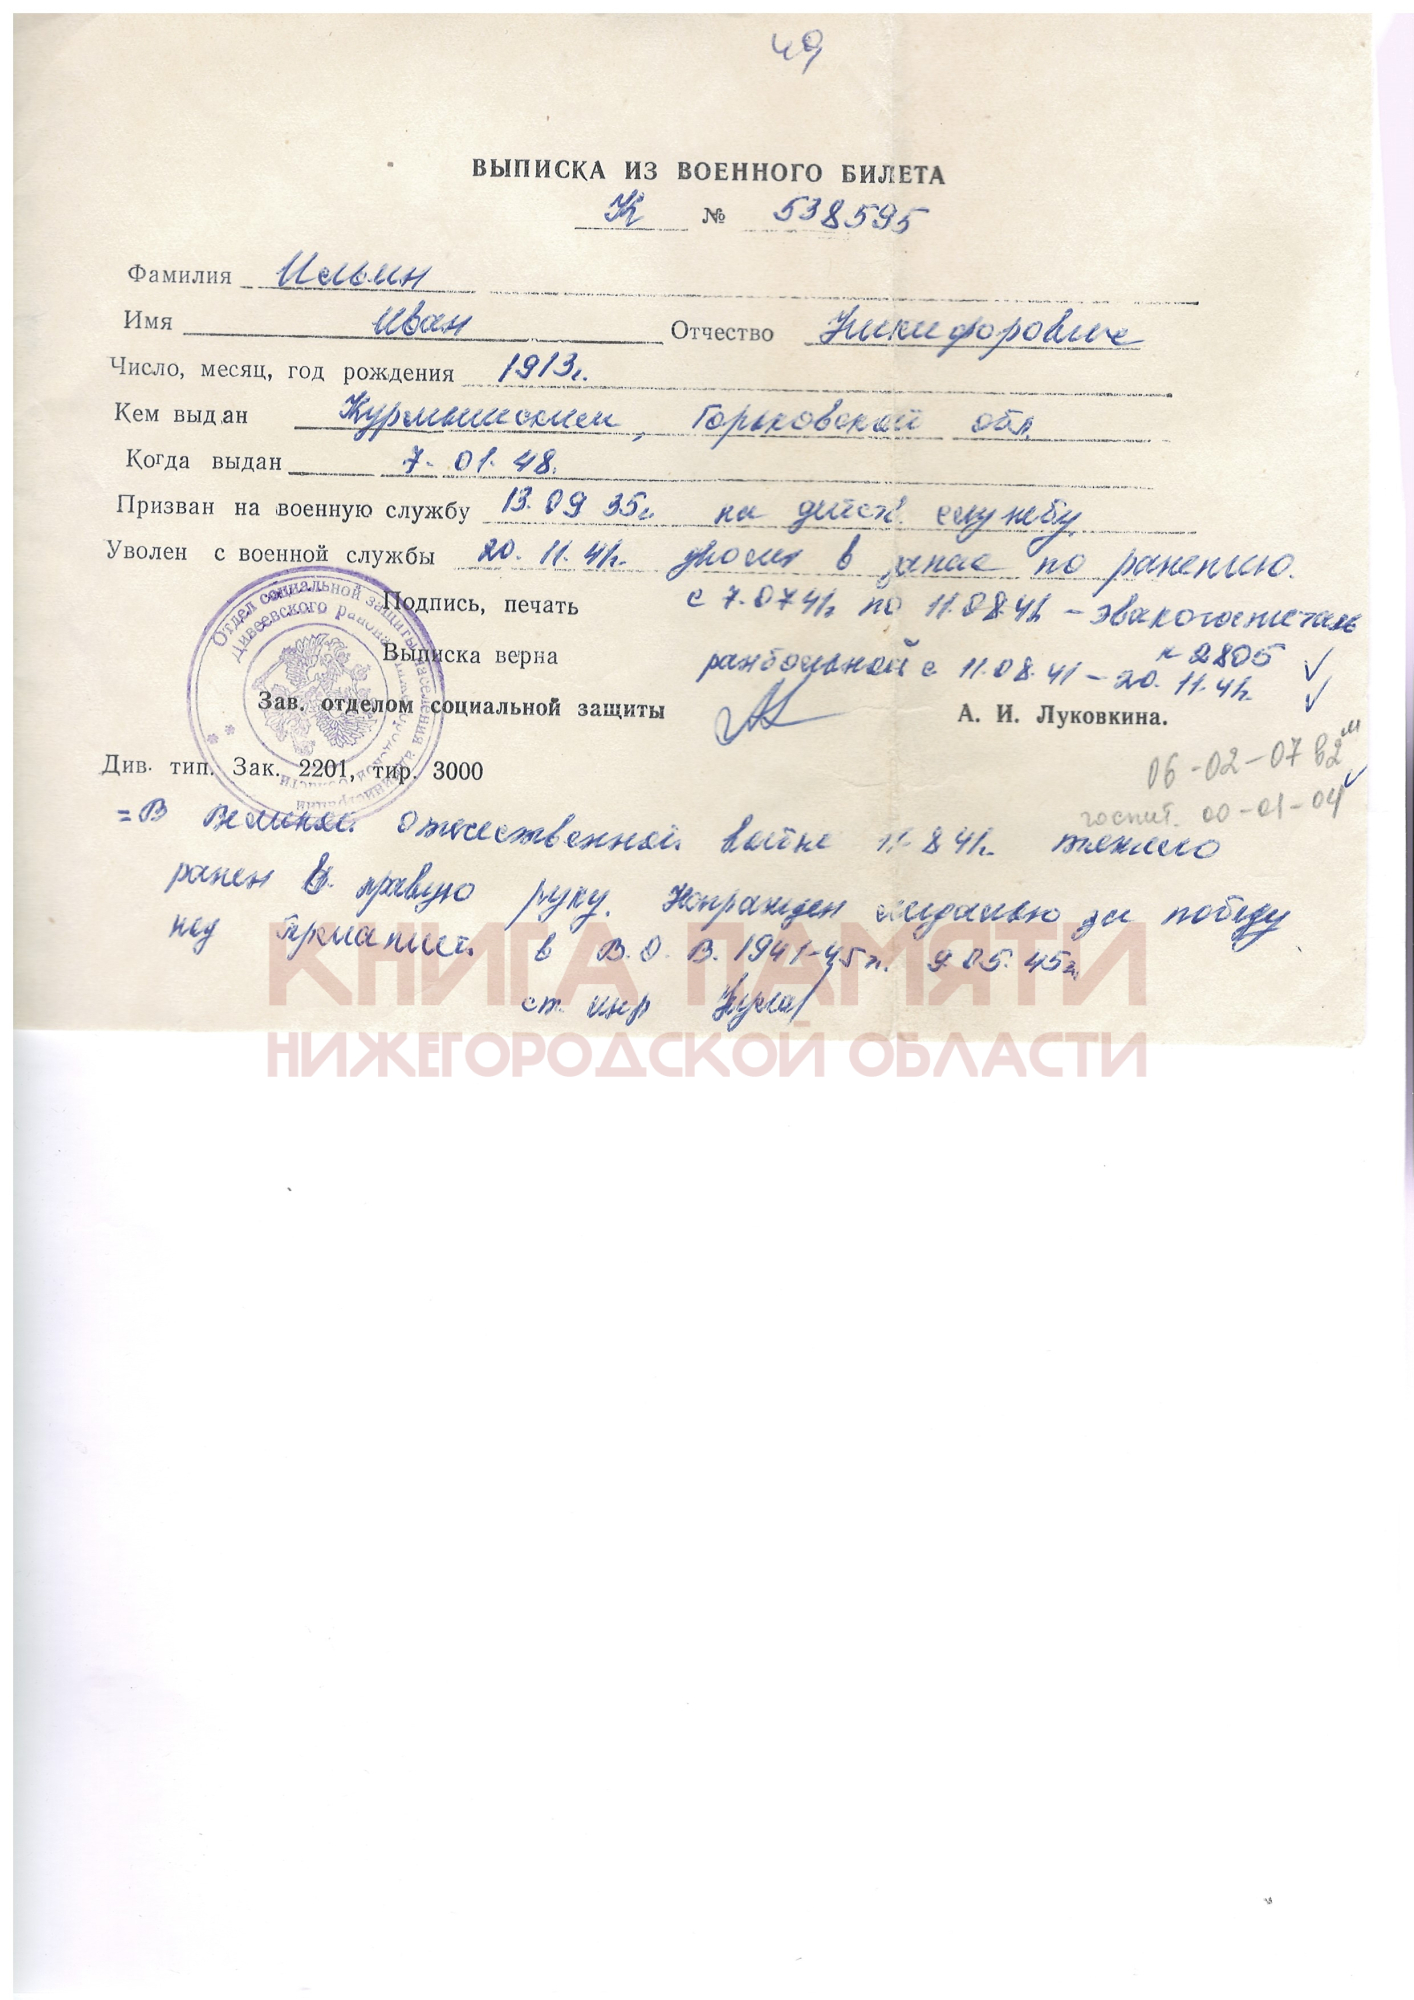 49
ВЫПИСКА ИЗ ВОЕННОГО БИЛЕТА
Ж № 538595
Фамилия Ильин
Имя Иван Отчество Никифорович
Число, месяц, год рождения 1913г.
Кем выдан Курмышским, Горьковской обл.
Когда выдан 7. 01. 48.
Призван на военную службу 13.09 35г. на действ. службу
Уволен с военной службы 20. 11. 41г. уволен в запас по ранению.
Подпись, печать с 7.07 41г. по 11.08.41г. – эвакогоспиталь
№ 2805
Выписка верна ранбольной с 11.08.41 – 20. 11.41г.
Зав. отделом социальной защиты А. И. Луковкина.
Отдел социальной защиты населения администрации
Дивеевского района Нижегородской области
06-02-07 в2м
Див. тип. Зак. 2201, тир. 3000
госпит. 00-01-04
=В Великой отечественной войне 11.8 41г. тяжело
ранен в правую руку. Награжден медалью за победу
над Германией в В.О.В. 1941-45гг. 9.05.45г.
ст. инр
КНИГА ПАМЯТИ
НИЖЕГОРОДСКОЙ ОБЛАСТИ